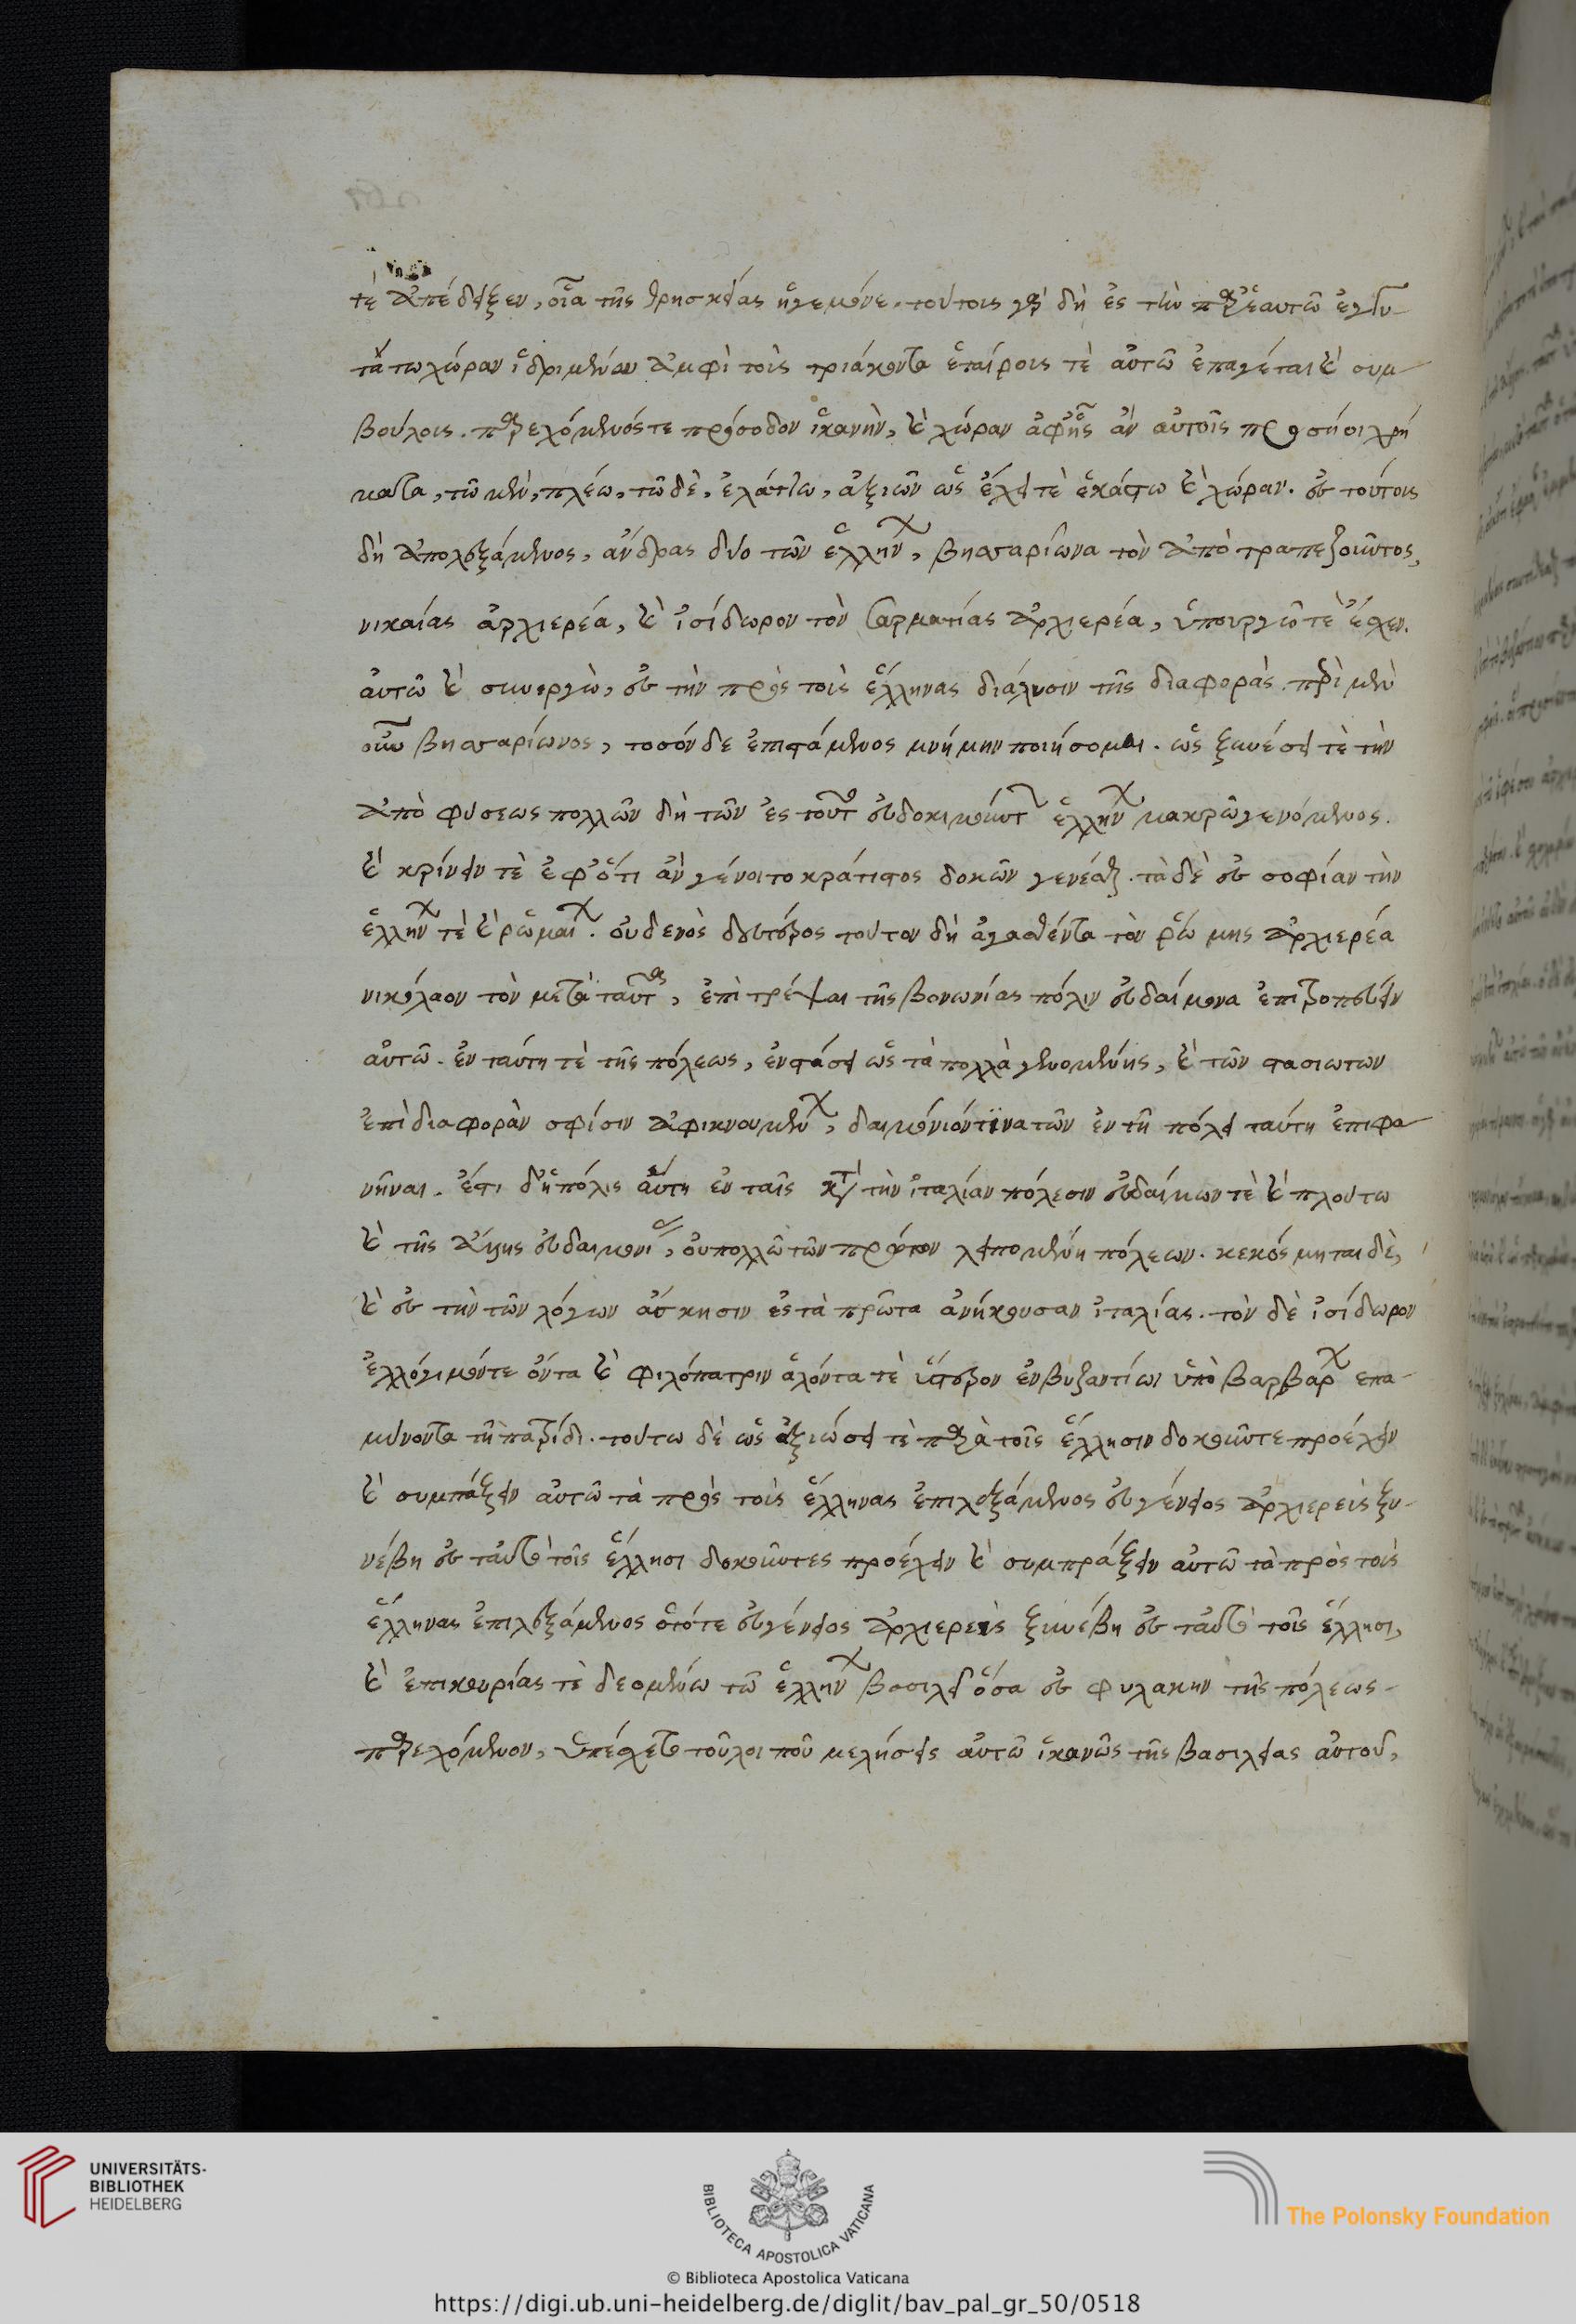 τὲ ἀπέδειξεν, οἷα τῆς θρησκείας ἡγεμόνε. τούτοις γὰρ δὴ ἐς τὴν παρ' ἑαυτῶ ἐγγυ-
τάτω χώραν ἱδρυμένον ἀμφὶ τοὺς τριάκοντα ἑταίροις τὲ αὐτῶ ἐπαγέται καὶ συμ-
βούλοις. παρεχόμενός τε πρόσοδον ἱκανὴν, καὶ χώραν ἀφ' ἧς ἂν αὐτοῖς προσήσι χρή
ματα, τῶ μὲν, πλέω, τῶ δὲ, ἐλάττω, ἀξιῶν ὡς ἔχει τὲ ἑκάστω καὶ χώραν. ἐν τούτοις
δὴ ἀπολεξάμενος, ἄνδρας δύο τῶν ἑλλήνων, βησσαρίωνα τὸν ἀπὸ τραπεζοῦντος,
νικαίας ἀρχιερέα, καὶ ἰσίδωρον τὸν σαρματίας ἀρχιερέα, ὑπουργὼ τὲ ἔσχεν.
αὐτῶ καὶ συνεργὼ, ἐν τὴν πρὸς τοὺς ἕλληνας διάλυσιν τῆς διαφορὰς. περὶ μὲν
οὖν βησσαρίωνος, τοσόνδε ἐπιστάμενος μνήμην ποιήσομαι. ὡς ξυνέσει τὲ τὴν
ἀπὸ φύσεως πολλῶν δὴ τῶν ἐς τοῦτο εὐδοκιμούντων ἑλλήνων μακρῶ γενόμενος.
καὶ κρίνειν τὲ ἐφ' ὅτι ἂν γένοιτο κράτιστος δοκῶν γενέσθαι. τὰ δὲ ἐν σοφίαν τὴν
ἑλλήνων τὲ καὶ ῥωμαίων. οὐδενὸς δεύτερος τοῦτον δὴ ἀγασθέντα τὸν ῥώμης ἀρχιερέα
νικόλαον τὸν μετὰ ταῦτα, ἐπιτρέψαι τῆς βονωνίας πόλιν εὐδαίμονα ἐπιτροπεύειν
αὐτῶ. ἐν ταύτη τὲ τῆς πόλεως, ἐν στάσει ὡς τὰ πολλὰ γενομένης, καὶ τῶν στασιωτων
ἐπὶ διαφορὰν σφίσιν ἀφικνουμένων, δαιμόνιόν τινα τῶν ἐν τῆ πόλει ταύτη ἐπιφα
νῆναι. ἔστι δ' ἡ πόλις αὕτη ἐν ταῖς κατὰ τὴν ἰταλίαν πόλεσιν εὐδαίμων τὲ καὶ πλούτω
καὶ τῆς ἄλλης εὐδαιμονίας, οὐ πολλῶ τῶν πρώτων λειπομένη πόλεων. κεκόσμηται δὲ,
καὶ ἐν τὴν τῶν λόγων ἄσκησιν ἐς τὰ πρῶτα ἀνήκουσαν ἰταλίας. τὸν δὲ ἰσίδωρον
ἐλλόγιμόν τε ὄντα καὶ φιλόπατριν ἁλόντα τὲ ὕστερον ἐν βυζαντίωι ὑπὸ βαρβάρων επα-
μύνοντα τῆ πατρίδι. τούτω δὲ ὡς ἀξιώσει τὲ παρὰ τοῖς ἕλλησιν δοκοῦντε προέχειν
καὶ συμπάξειν αὐτῶ τὰ πρὸς τοὺς ἕλληνας ἐπιλεξάμενος εὐγένειος ἀρχιερεὺς ξυ-
νέβη ἐν ταῦτα τοῖς ἕλλησι δοκοῦντες προέχειν καὶ συμπράξειν αὐτῶ τὰ πρὸς τοὺς
ἕλληνας ἐπιλεξάμενος ὅτότε εὐγένειος ἀρχιερεὺς ξυνέβη ἐν ταῦτα τοῖς ἕλλησι,
καὶ ἐπικουρίας τὲ δεομένω τῶ ἑλλήνων βασιλεῖ ὅσα ἐν φυλακην τῆς πόλεως
παρεχόμενον, ὑπέσχετο τοῦλοιποῦ μελήσεις αὐτῶ ἱκανῶς τῆς βασιλείας αὐτοῦ,
UNIVERSITÄTS-
BIBLIOTHEK
HEIDELBERG
BIBLIOTECA APOSTOLICA VATICANA
The Polonsky Foundation
© Biblioteca Apostolica Vaticana
https://digi.ub.uni-heidelberg.de/diglit/bav_pal_gr_50/0518